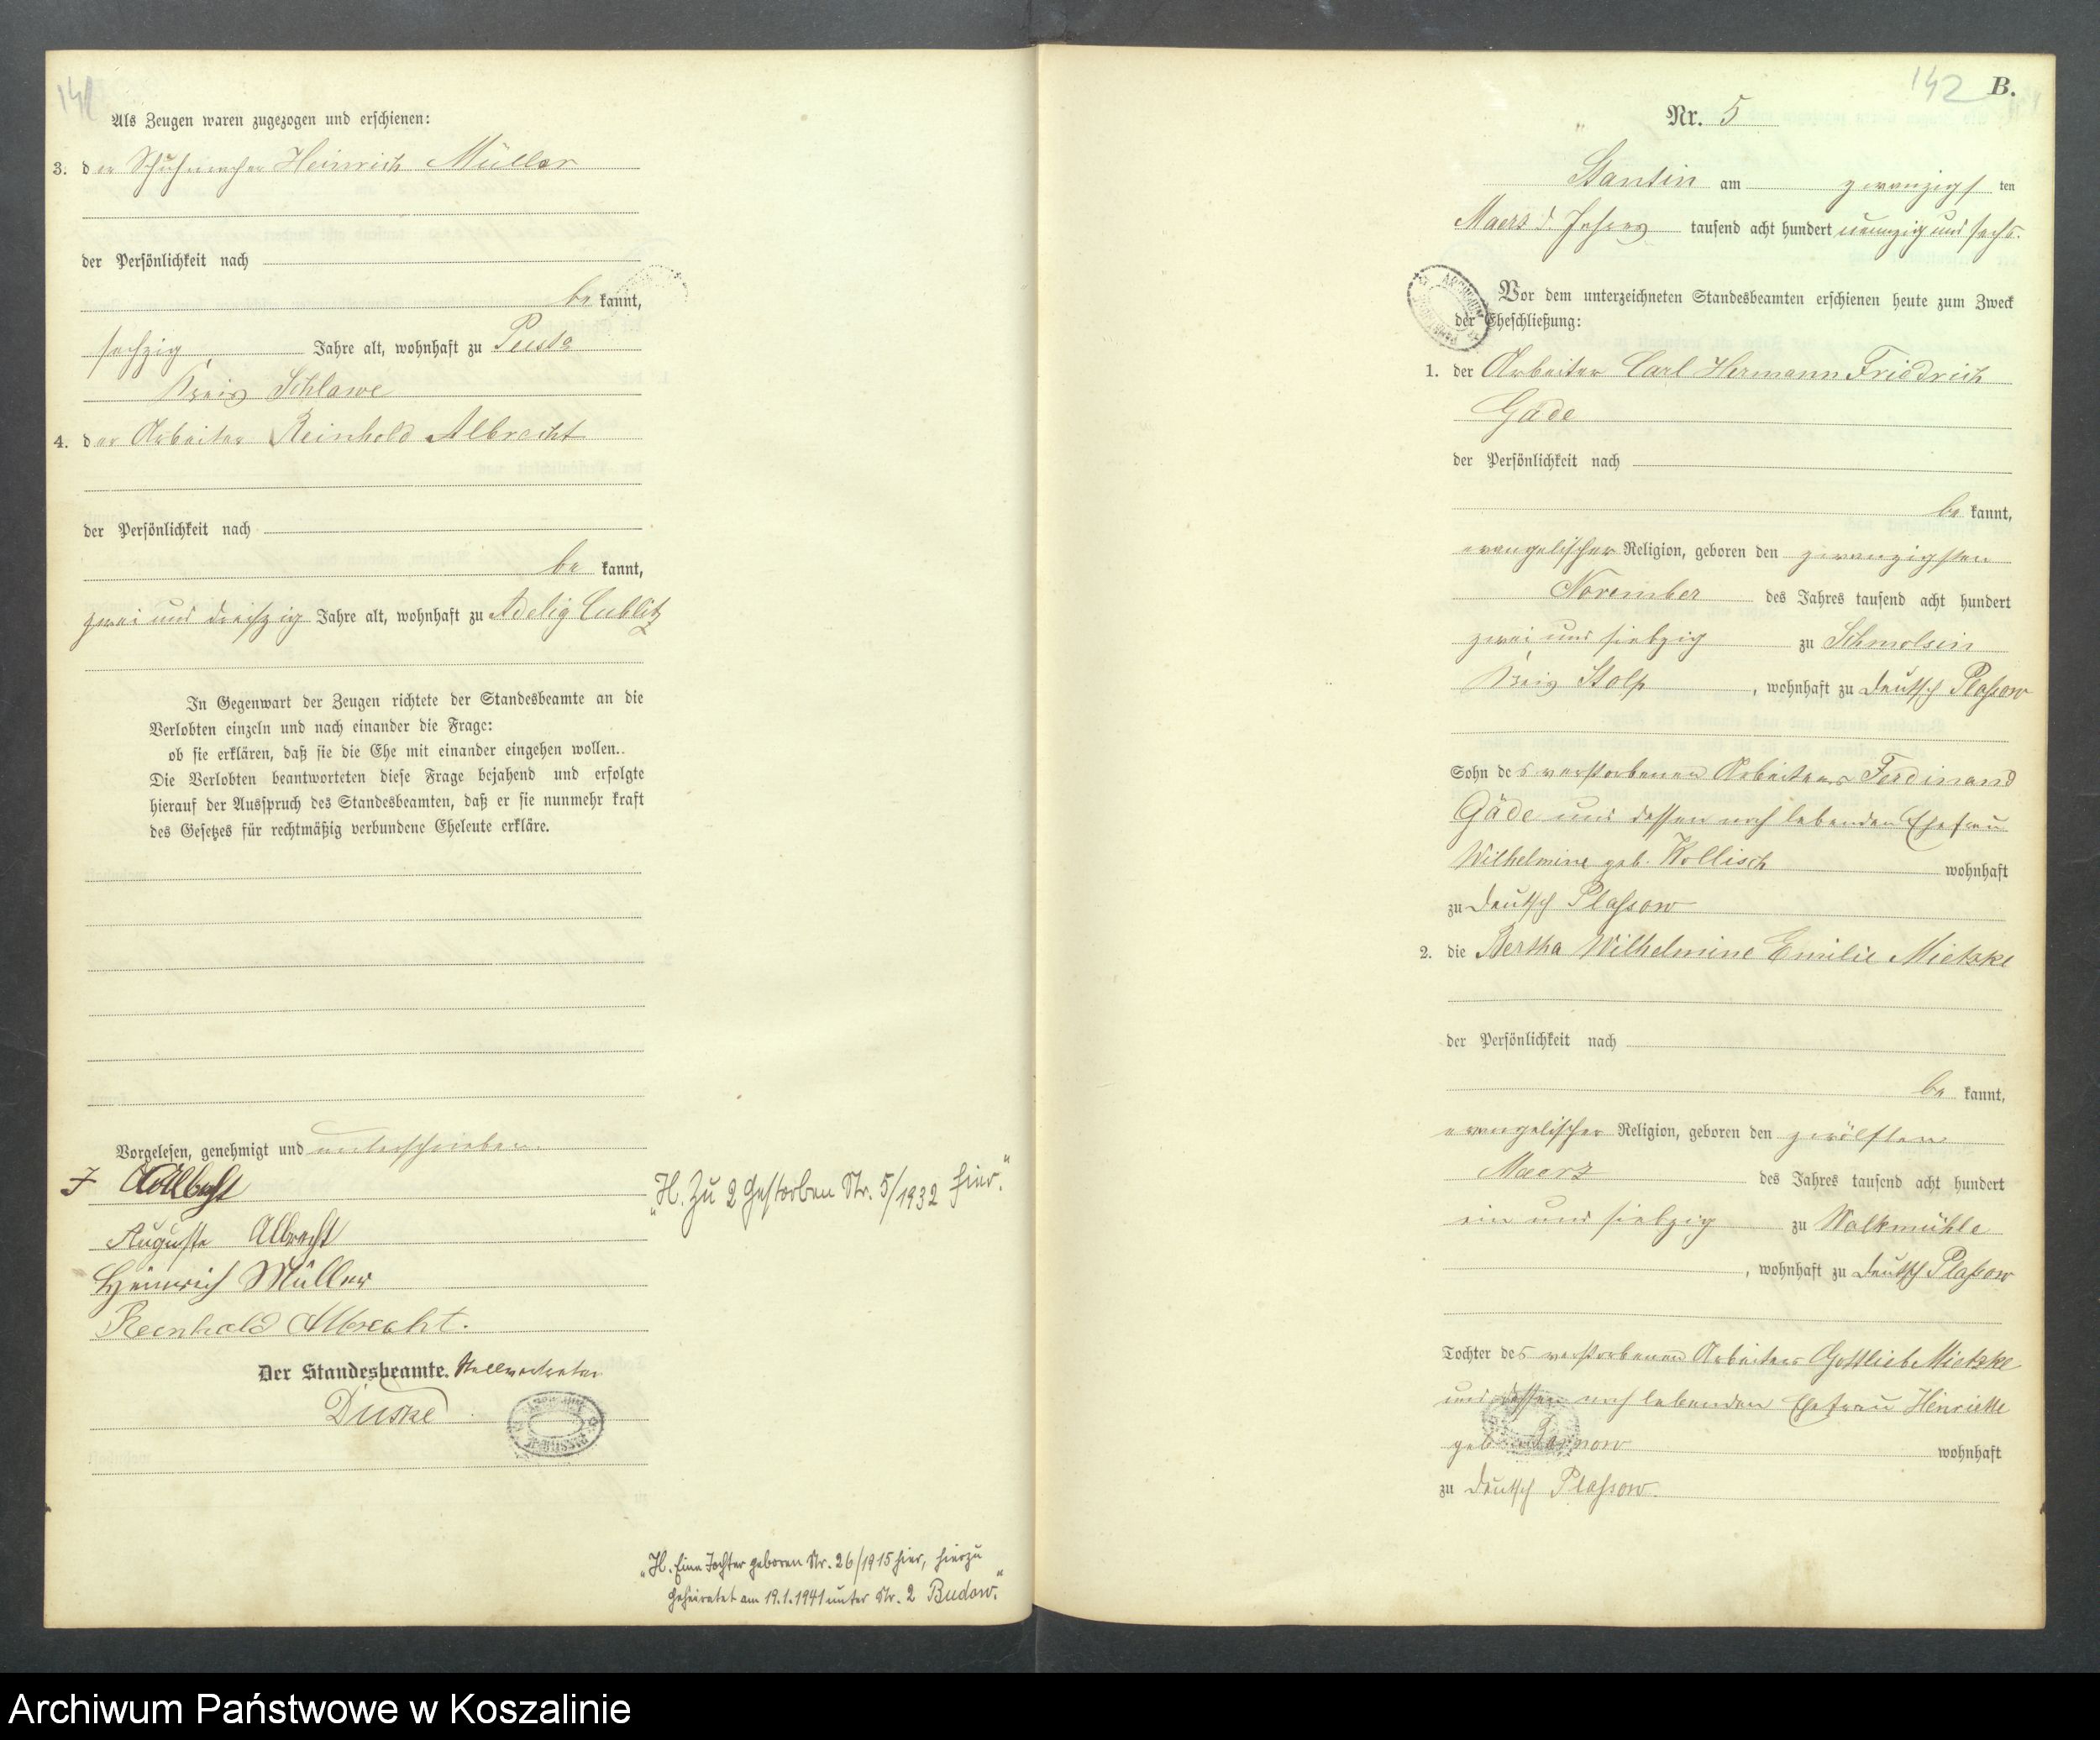 Als Zeugen waren zugezogen und erschienen:
3. der Schuhmacher Heinrich Müller
der Persönlichkeit nach
bekannt,
sechzig Jahre alt, wohnhaft zu Peest
Kreis Schlawe
4. der Arbeiter Reinhold Albrecht
der Persönlichkeit nach
bekannt,
zwei und dreißzig Jahre alt, wohnhaft zu Adelig Cublitz
In Gegenwart der Zeugen richtete der Standesbeamte an die
Verlobten einzeln und nach einander die Frage:
ob sie erklären, daß sie die Ehe mit einander eingehen wollen.
Die Verlobten beantworteten diese Frage bejahend und erfolgte
hierauf der Ausspruch des Standesbeamten, daß er sie nunmehr kraft
des Gesetzes für rechtmäßig verbundene Eheleute erkläre.
Vorgelesen, genehmigt und unterschrieben.
Albrecht
Auguste Albrecht
Heinrich Müller
Reinhold Albrecht.
Der Standesbeamte. Stellvertreter
„H. Zu 2 Gestorben Nr. 5/1932 hier."
„H. Eine Tochter geboren Nr. 26/1915 hier, hierzu
geheiratet am 19.1.1941 unter Nr. 2 Budow."
142 B.
Nr. 5
Stantin am zwanzigsten
Maerz d. Jahres tausend acht hundert neunzig und sechs.
Vor dem unterzeichneten Standesbeamten erschienen heute zum Zweck
der Eheschließung:
1. der Arbeiter Carl Hermann Friedrich
Gäde
der Persönlichkeit nach
bekannt,
evangelischer Religion, geboren den zwanzigsten
November des Jahres tausend acht hundert
zwei und siebzig zu Schmolsin
Kreis Stolp, wohnhaft zu Deutsch Plassow
Sohn des verstorbenen Arbeiters Ferdinand
Gäde und dessen noch lebenden Ehefrau
Wilhelmine geb. Wollisch wohnhaft
zu Deutsch Plassow
2. die Bertha Wilhelmine Emilie Mietzke
der Persönlichkeit nach
bekannt,
evangelischer Religion, geboren den zwölften
Maerz des Jahres tausend acht hundert
ein und siebzig zu Walkmühle
, wohnhaft zu Deutsch Plassow
Tochter des verstorbenen Arbeiters Gottlieb Mietzke
und dessen noch lebenden Ehefrau Henriette
geb. wohnhaft
zu Deutsch Plassow.
Archiwum Państwowe w Koszalinie